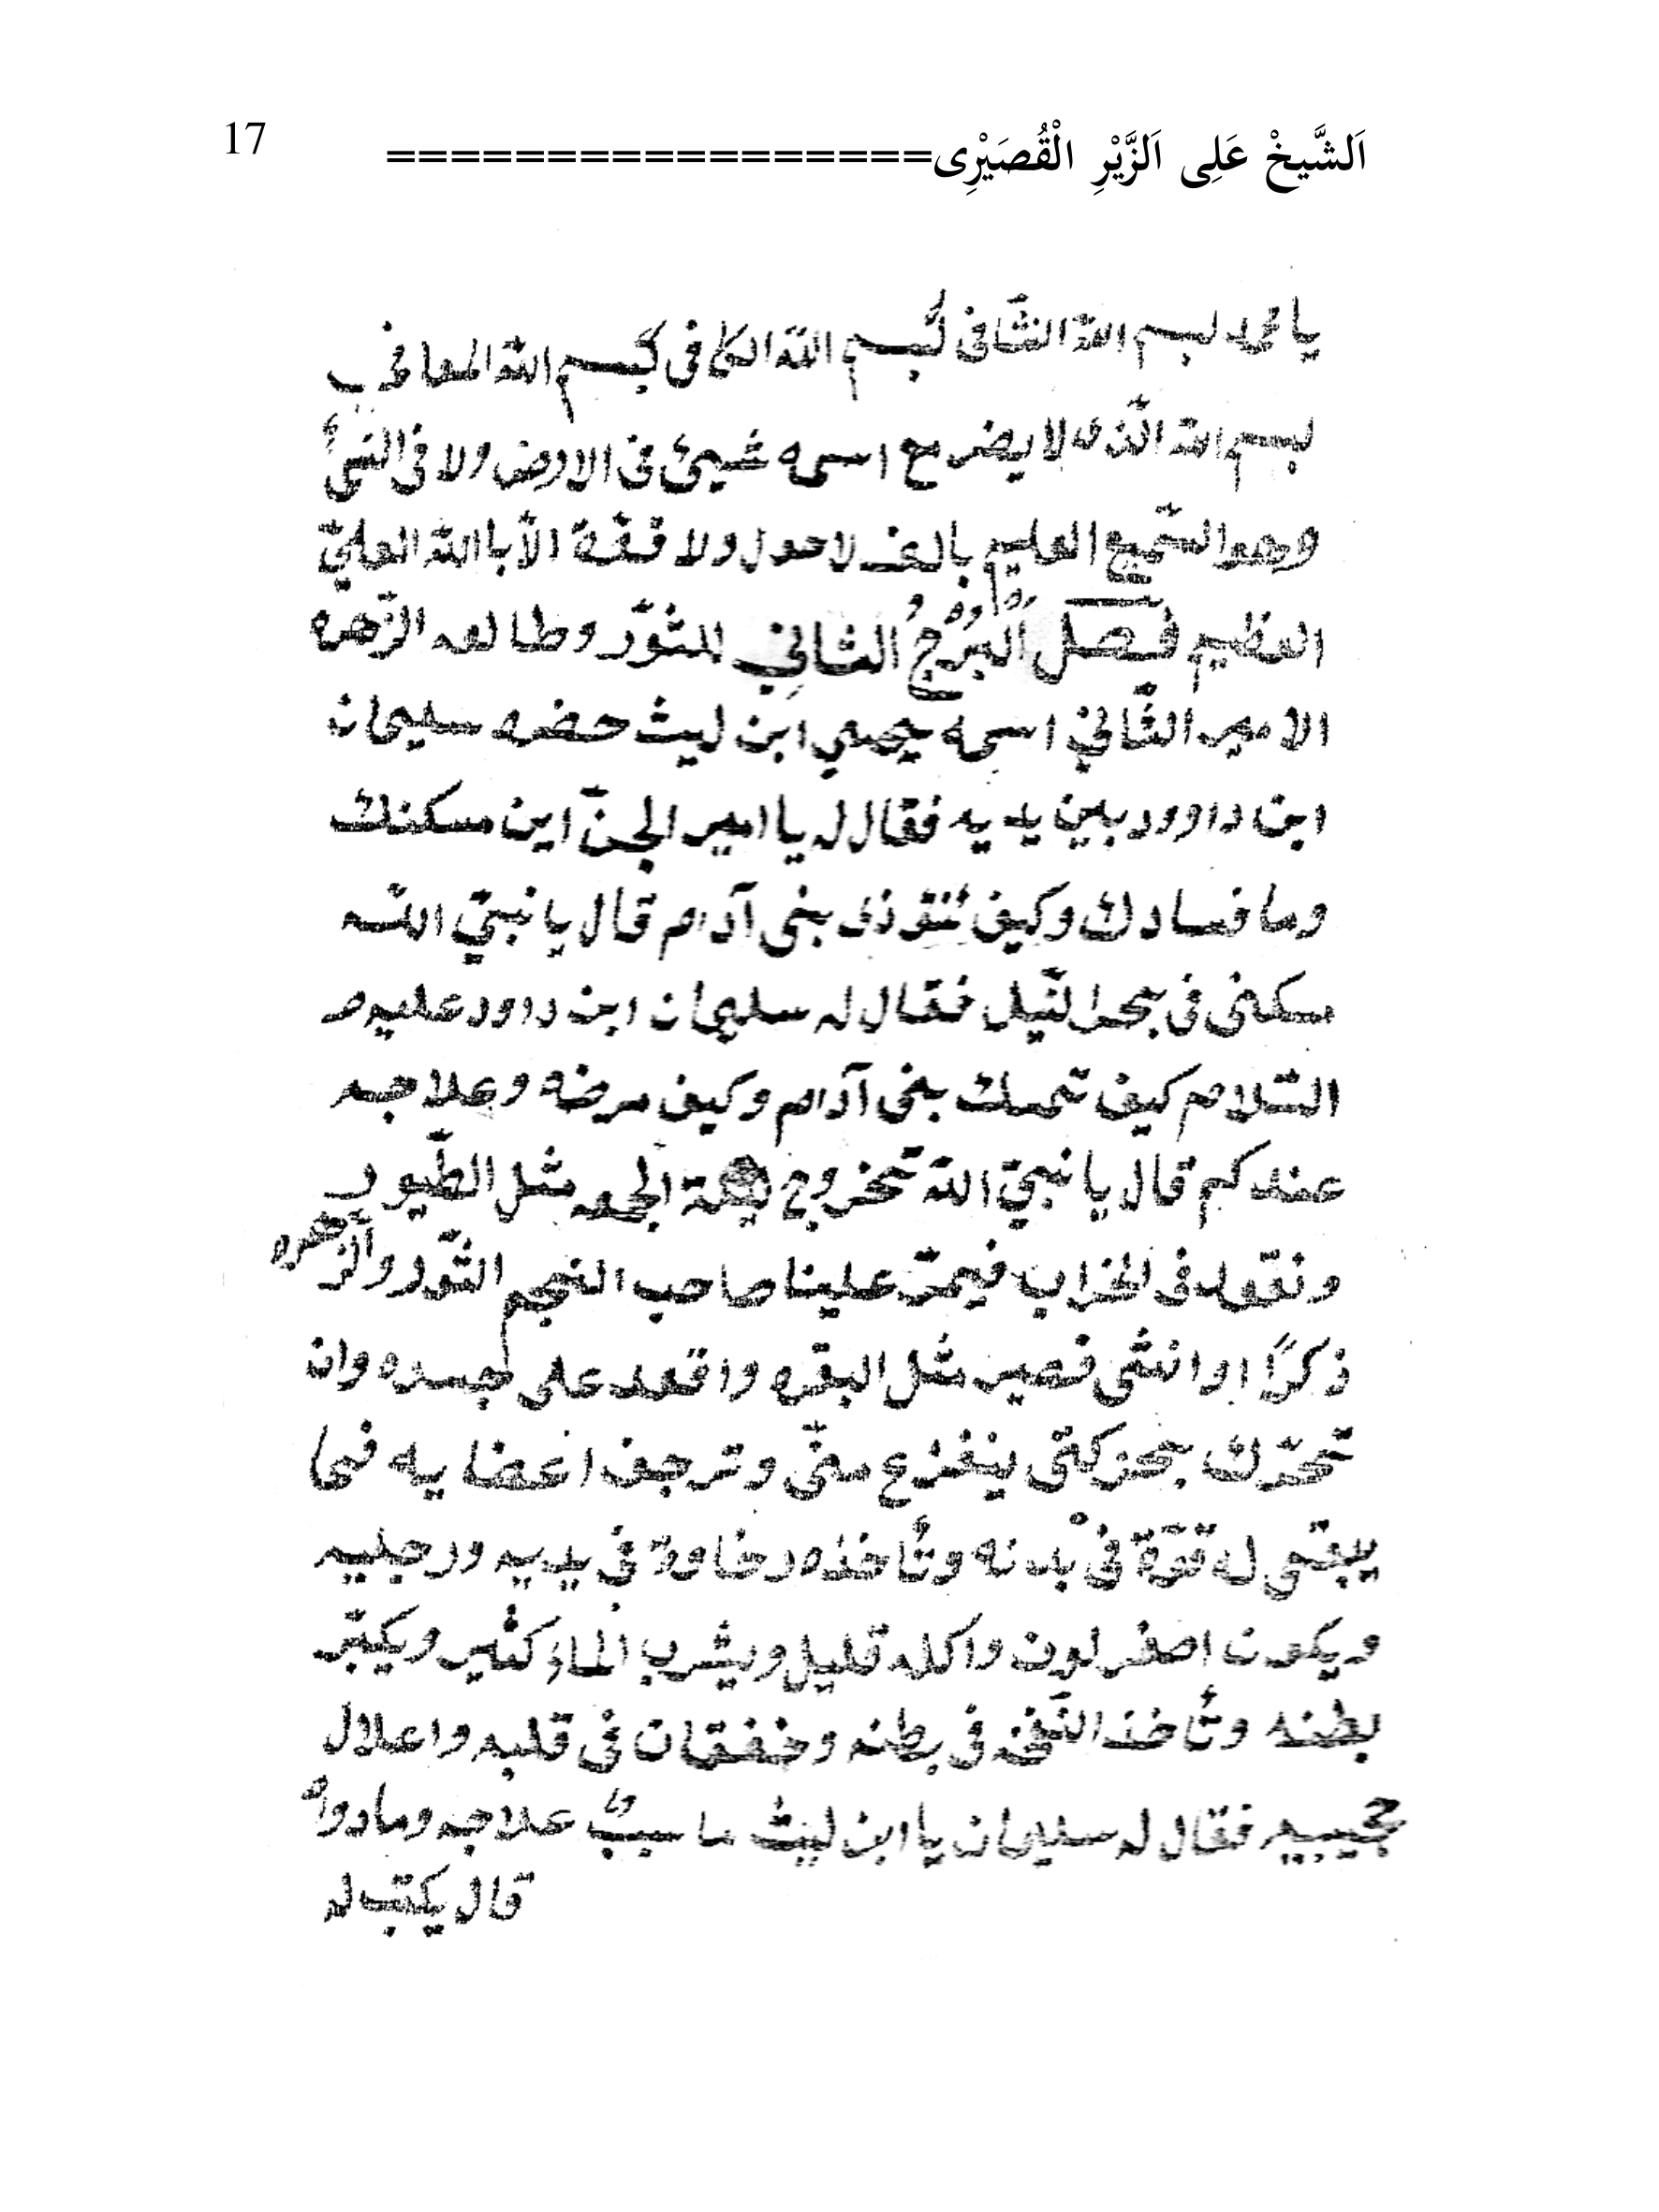 اَلشَّيخْ عَلِى اَلزَّيْرِ الْقُصَيْرِى================= 17
يا محمد بسم الله الشّافى بسم الله الكافى بسم الله المعافى
بسم الله الّذى لا يضر مع اسمه شيئ فى الارض ولا فى السّمأ
وهو السّميع العليم بالف لا حول ولا قوّة الّا باالله العليّ
العظيم فصل اَلْبُرْجُ الثانِي للثوّر وطالعه الزّهره
الامير الثّاني اسمه ابن ليث حضه سليمان
ابن داوود بين يديه فقال له يا امير الجنّ اين مسكنك
وما فسادك وكيف تتوذى بنى آدام قال يا نبيّ الله
مسكنى فى بحر النّيل فقال له سليمان ابن داود عليه
السّلام كيف تمسك بنى آدام وكيف مرضه وعلاجه
عندكم قال يا نبيّ الله تخروج ليلة الجمعه مثل الطّيور
ونقعد فى الخراب فيمرّ علينا صاحب النجم الثّور والزّهره
ذكرًا او انثى فصير مثل البقره واقعد على جسده وان
تحرّك بحركتى ينفزع منّى وترجف اعضايه فما
يبقى له قوّة فى بدنه وتأخذه رخاوة فى يديه ورجليه
ويكون اصفر لون واكله قليل ويشرب الماء كثير ويكبّر
بطنه وتأخذ النّفخه فى بطنه وخفقان فى قلبه واعلال
فقال له سليمان يا ابن ليث ما سببُ علاجه وما دوأه
قال يكتب له